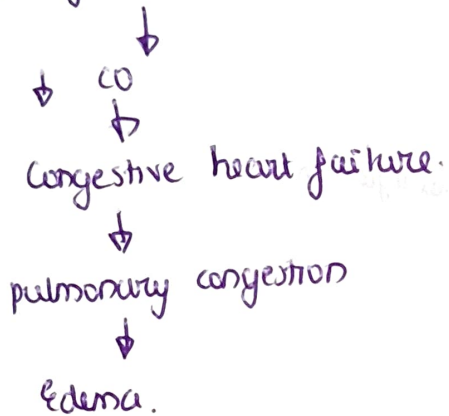 ↓
↓ CO
↓
Congestive heart failure.
↓
pulmonury congestion
↓
Edema.